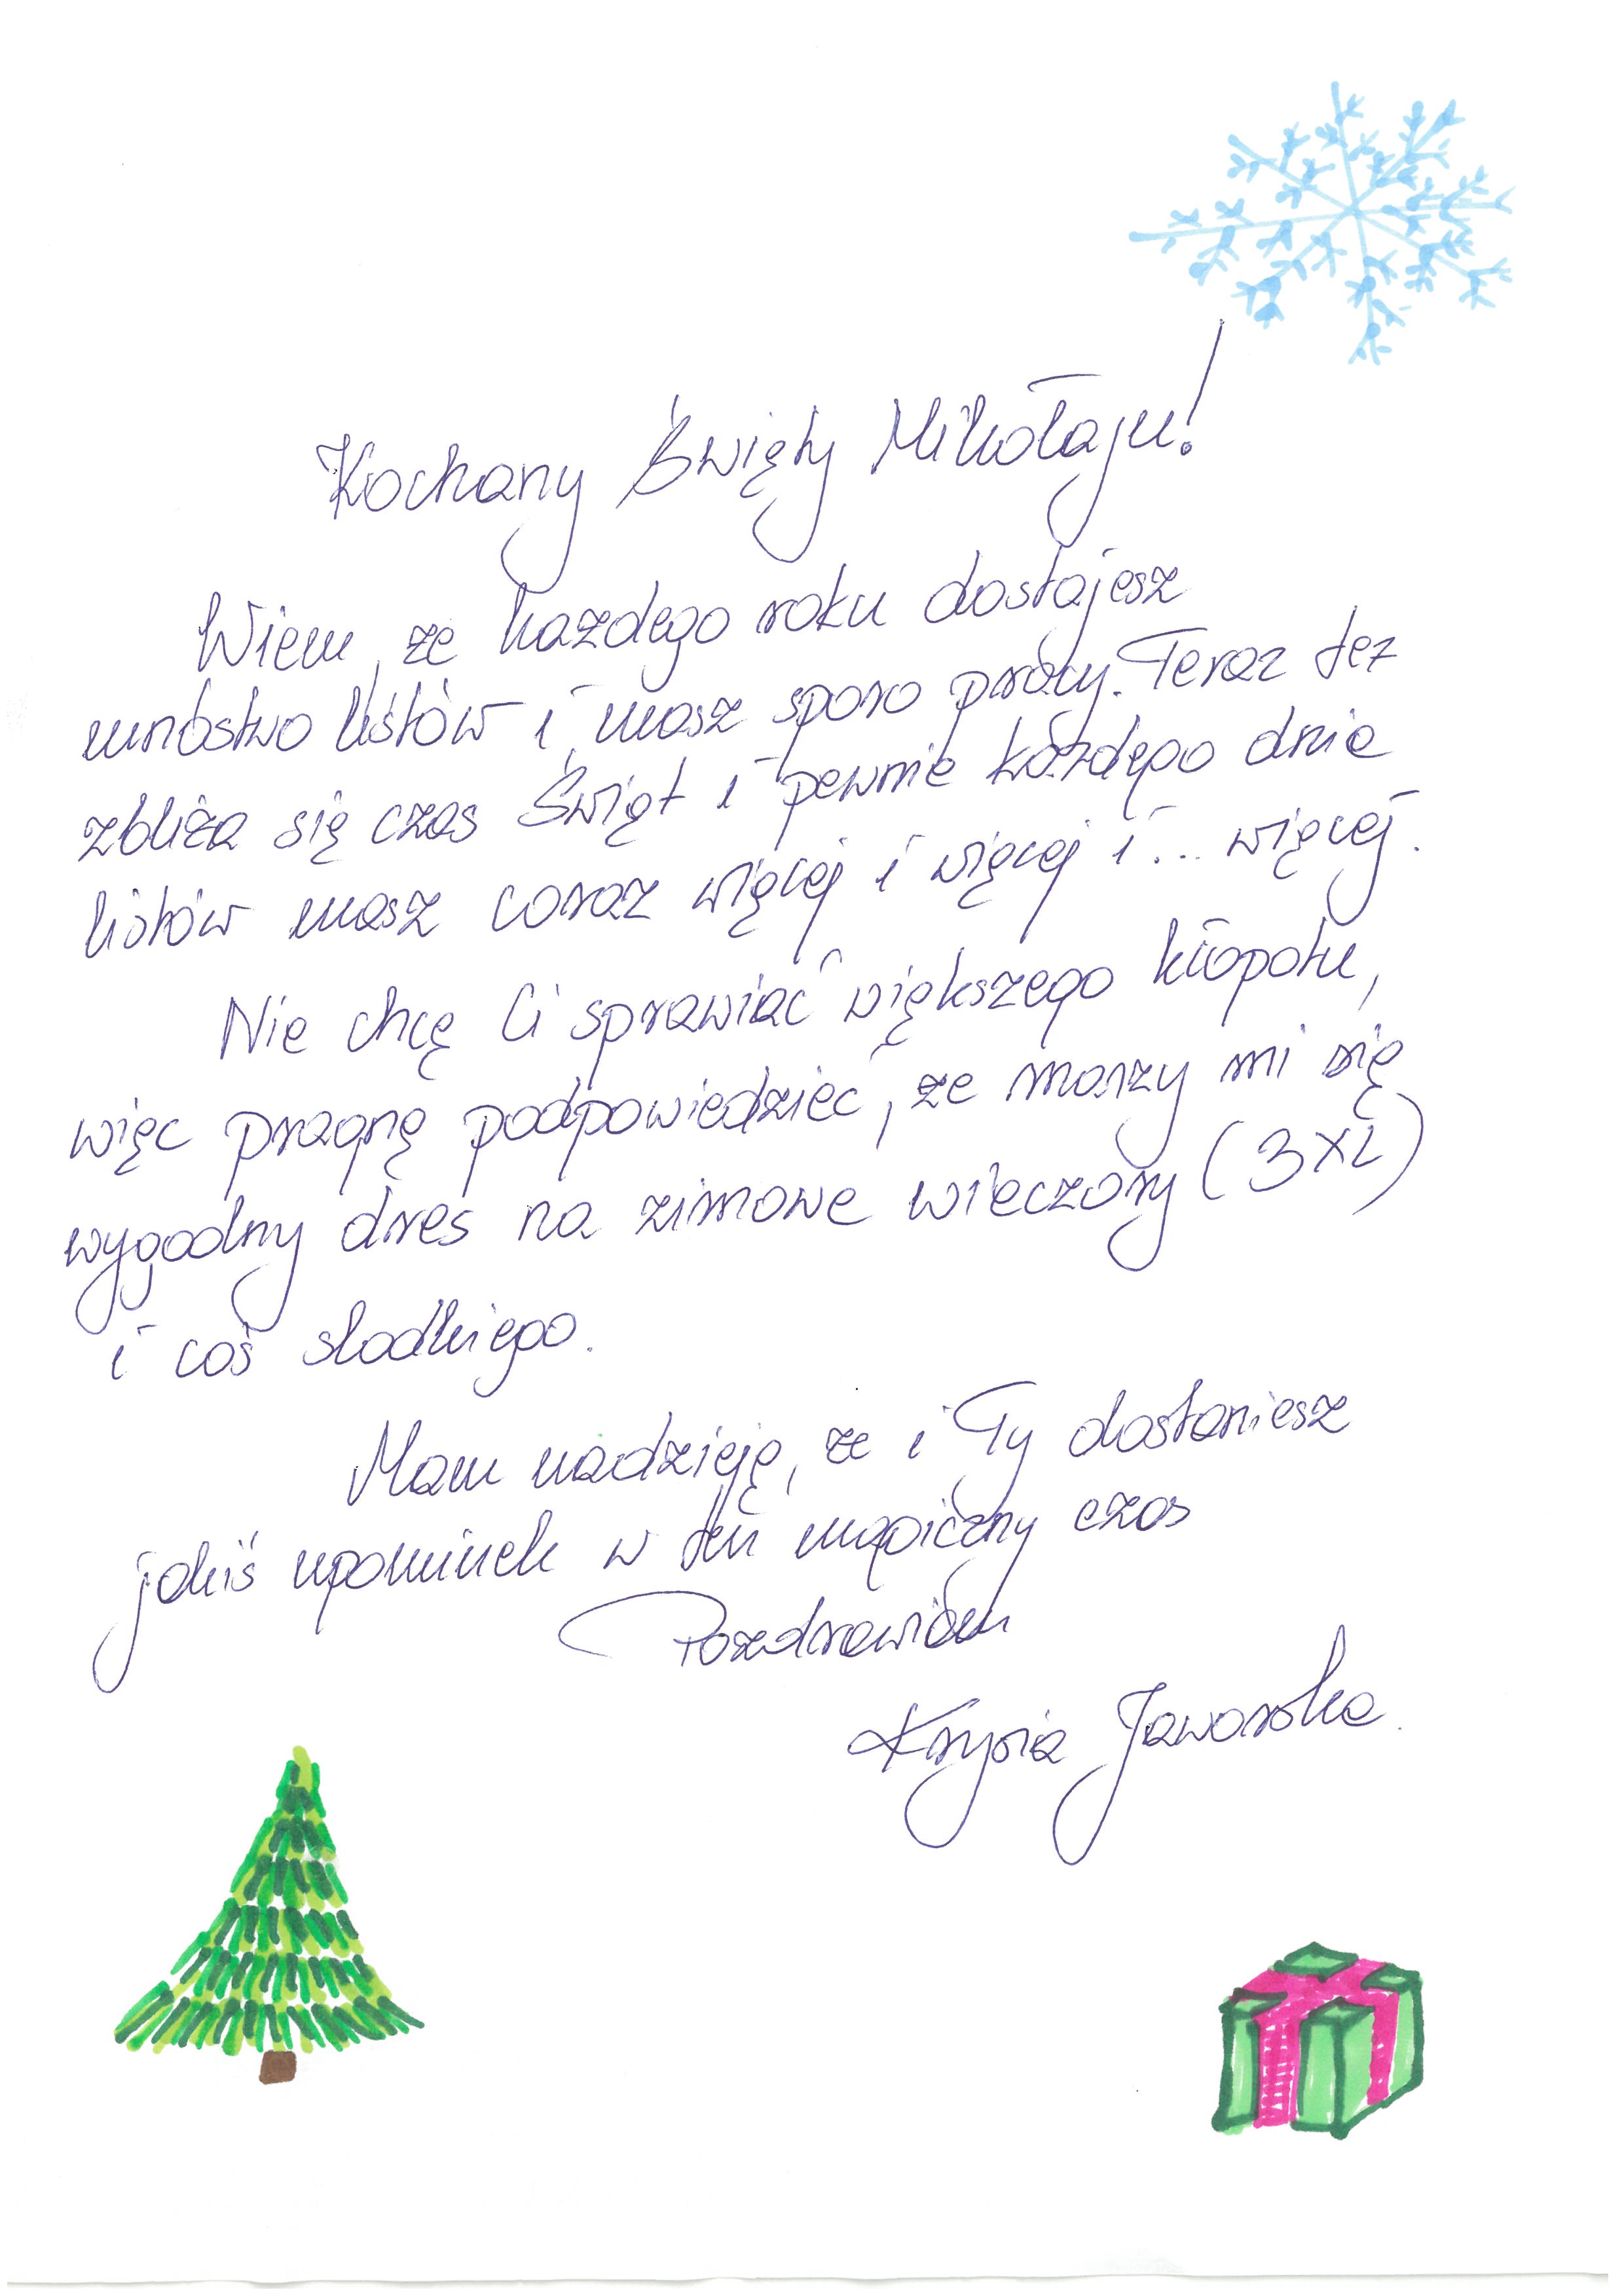 Kochany Święty Mikołaju!
Wiem, że każdego roku dostajesz
mnóstwo listów i masz sporo pracy. Teraz też
zbliża się czas Świąt i pewnie każdego dnia
listów masz coraz więcej i więcej i... więcej.
Nie chcę Ci sprawiać większego kłopotu,
więc pragnę podpowiedzieć, że marzy mi się
wygodny dres na zimowe wieczory (3XL)
i coś słodkiego.
Mam nadzieję, że i Ty dostaniesz
jakiś upominek w ten magiczny czas
Pozdrawiam
Krysia Jaworska.